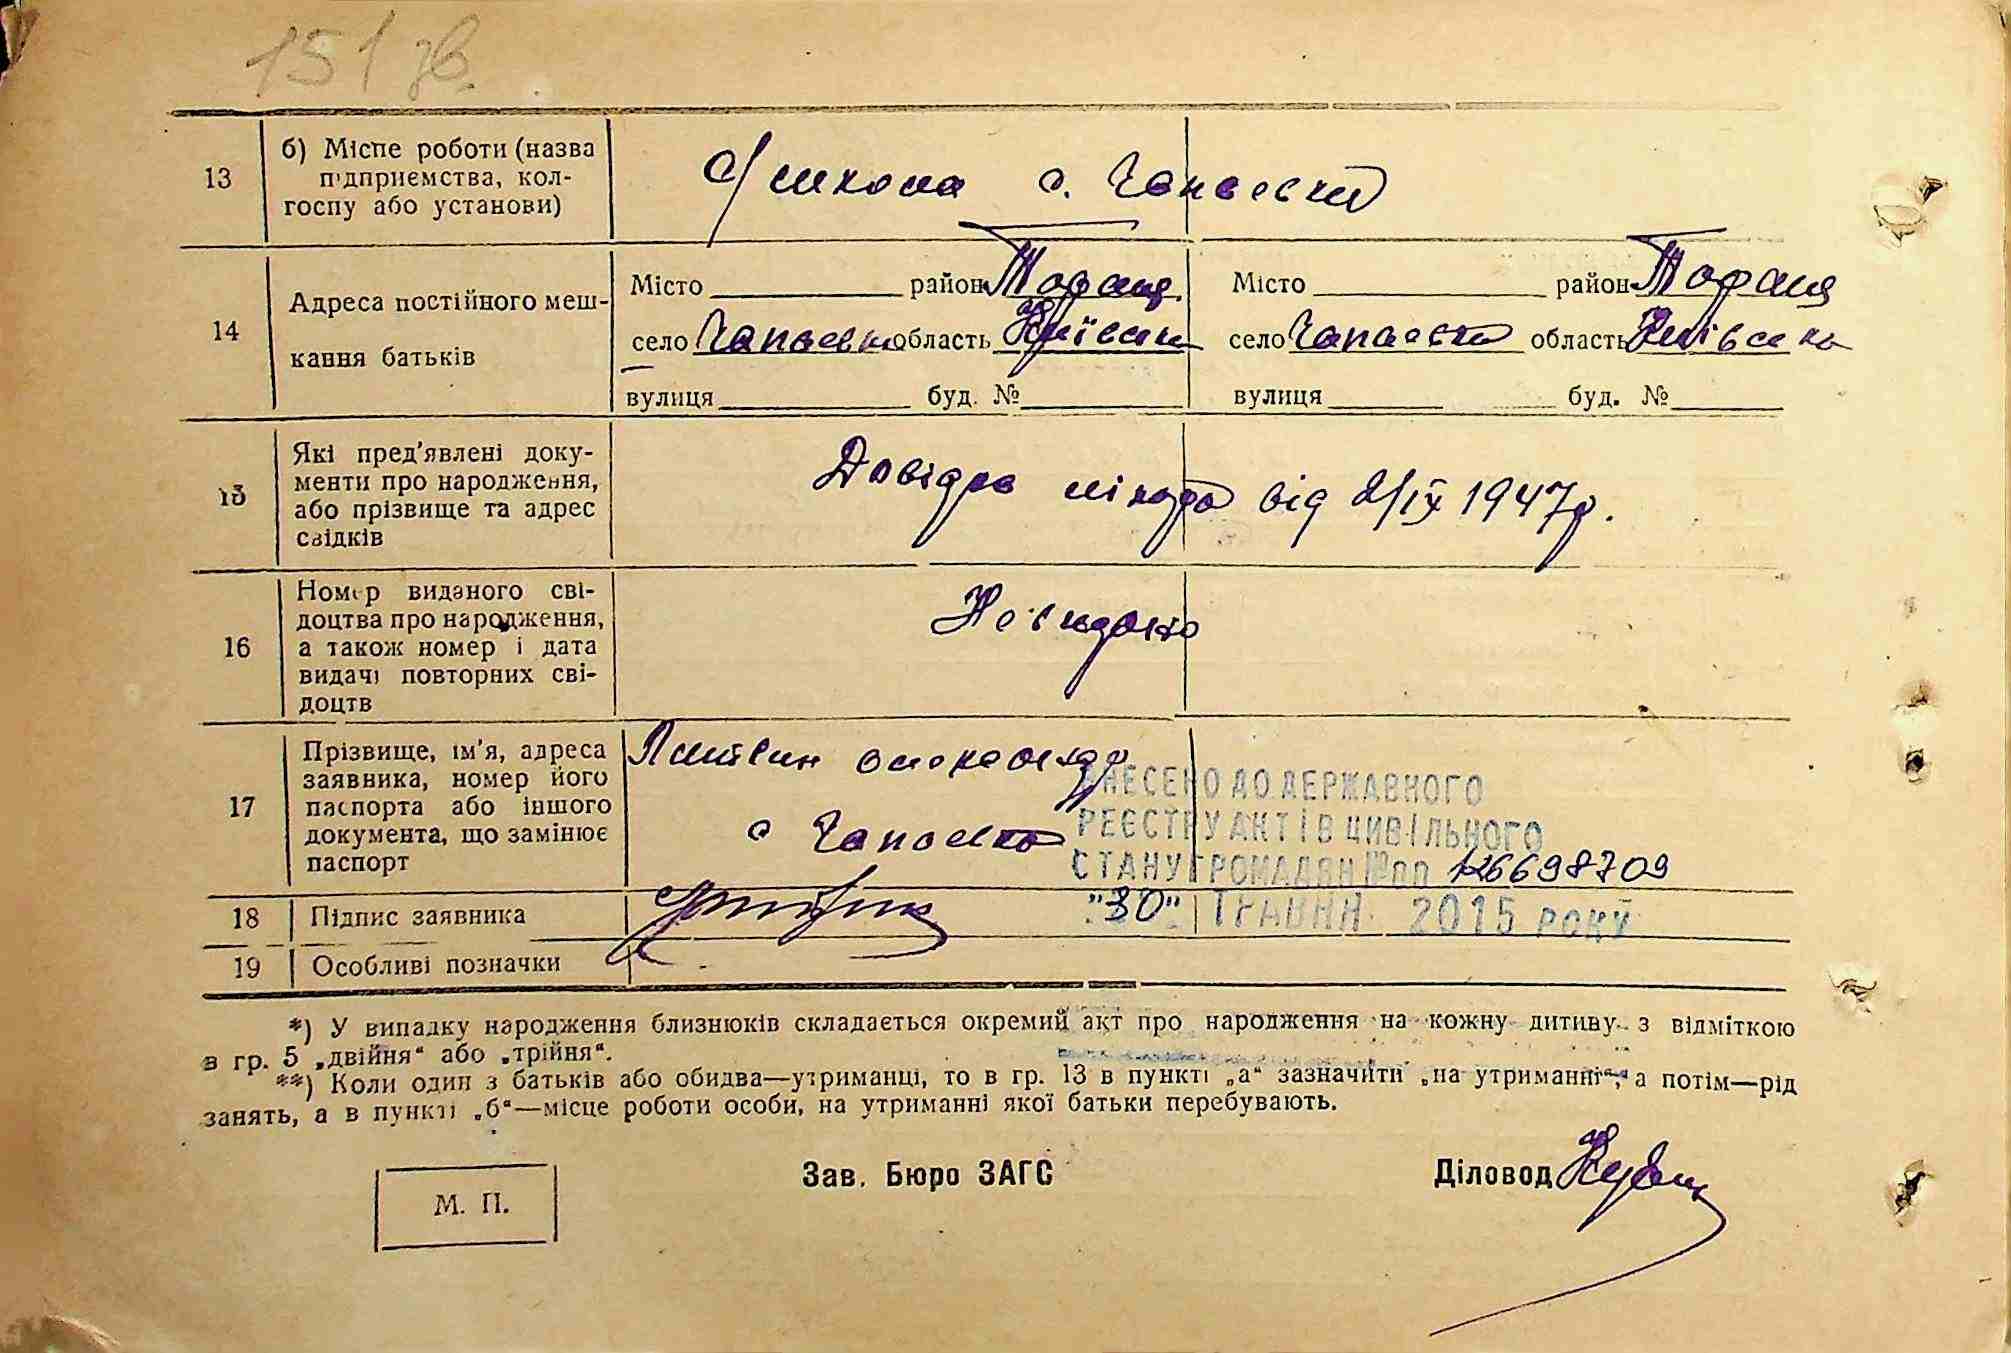 151 зв.
13 б) Місце роботи (назва
підприємства, кол-
госпу або установи)
школа с. Чапаєвка
14 Адреса постійного меш-
кання батьків
Місто район Тараща
село Чапаєвка область Київська
вулиця буд. №
Місто район Тараща
село Чапаєвка область Київська
вулиця буд. №
15 Які пред'явлені доку-
менти про народження,
або прізвище та адрес
свідків
Довідка від 2/IX 1947р.
16 Номер виданого сві-
доцтва про народження,
а також номер і дата
видачі повторних сві-
доцтв
Не видано
17 Прізвище, ім'я, адреса
заявника, номер його
паспорта або іншого
документа, що замінює
паспорт
Литвин
с Чапаєвка
ВНЕСЕНО ДО ДЕРЖАВНОГО
РЕЄСТРУ АКТІВ ЦИВІЛЬНОГО
СТАНУ ГРОМАДЯН №пп 126698709
"30" ТРАВНЯ 2015 РОКУ
18 Підпис заявника
19 Особливі позначки -
*) У випадку народження близнюків складається окремий акт про народження на кожну дитину з відміткою
в гр. 5 „двійня“ або „трійня“.
**) Коли один з батьків або обидва—утриманці, то в гр. 13 в пункті „а“ зазначити „на утриманні“, а потім—рід
занять, а в пункті „б“—місце роботи особи, на утриманні якої батьки перебувають.
М. П.
Зав. Бюро ЗАГС
Діловод